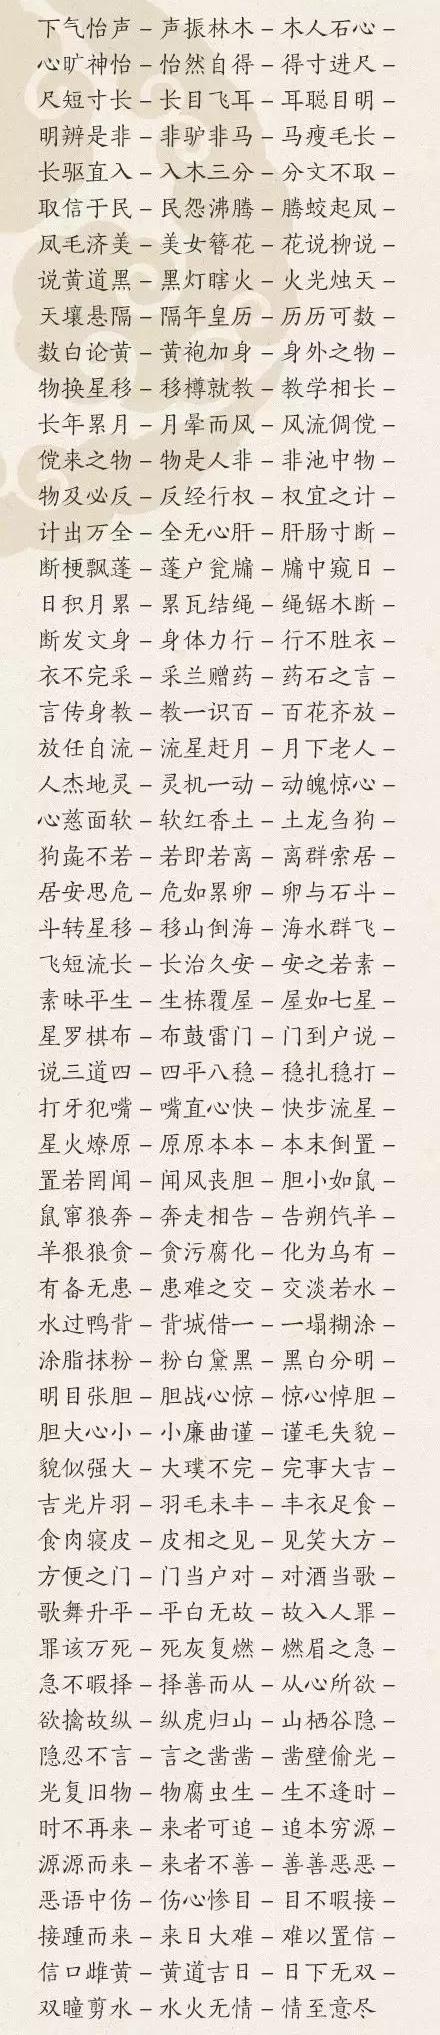 下气怡声－声振林木－木人石心－
心旷神怡－怡然自得－得寸进尺－
尺短寸长－长目飞耳－耳聪目明－
明辨是非－非驴非马－马瘦毛长－
长驱直入－入木三分－分文不取－
取信于民－民怨沸腾－腾蛟起凤－
凤毛济美－美女簪花－花说柳说－
说黄道黑－黑灯瞎火－火光烛天－
天壤悬隔－隔年皇历－历历可数－
数白论黄－黄袍加身－身外之物－
物换星移－移樽就教－教学相长－
长年累月－月晕而风－风流倜傥－
傥来之物－物是人非－非池中物－
物及必反－反经行权－权宜之计－
计出万全－全无心肝－肝肠寸断－
断梗飘蓬－蓬户瓮牖－牖中窥日－
日积月累－累瓦结绳－绳锯木断－
断发文身－身体力行－行不胜衣－
衣不完采－采兰赠药－药石之言－
言传身教－教一识百－百花齐放－
放任自流－流星赶月－月下老人－
人杰地灵－灵机一动－动魄惊心－
心慈面软－软红香土－土龙刍狗－
狗彘不若－若即若离－离群索居－
居安思危－危如累卵－卵与石斗－
斗转星移－移山倒海－海水群飞－
飞短流长－长治久安－安之若素－
素昧平生－生栋覆屋－屋如七星－
星罗棋布－布鼓雷门－门到户说－
说三道四－四平八稳－稳扎稳打－
打牙犯嘴－嘴直心快－快步流星－
星火燎原－原原本本－本末倒置－
置若罔闻－闻风丧胆－胆小如鼠－
鼠窜狼奔－奔走相告－告朔饩羊－
羊狠狼贪－贪污腐化－化为乌有－
有备无患－患难之交－交淡若水－
水过鸭背－背城借一－一塌糊涂－
涂脂抹粉－粉白黛黑－黑白分明－
明目张胆－胆战心惊－惊心悼胆－
胆大心小－小廉曲谨－谨毛失貌－
貌似强大－大璞不完－完事大吉－
吉光片羽－羽毛未丰－丰衣足食－
食肉寝皮－皮相之见－见笑大方－
方便之门－门当户对－对酒当歌－
歌舞升平－平白无故－故入人罪－
罪该万死－死灰复燃－燃眉之急－
急不暇择－择善而从－从心所欲－
欲擒故纵－纵虎归山－山栖谷隐－
隐忍不言－言之凿凿－凿壁偷光－
光复旧物－物腐虫生－生不逢时－
时不再来－来者可追－追本穷源－
源源而来－来者不善－善善恶恶－
恶语中伤－伤心惨目－目不暇接－
接踵而来－来日大难－难以置信－
信口雌黄－黄道吉日－日下无双－
双瞳剪水－水火无情－情至意尽